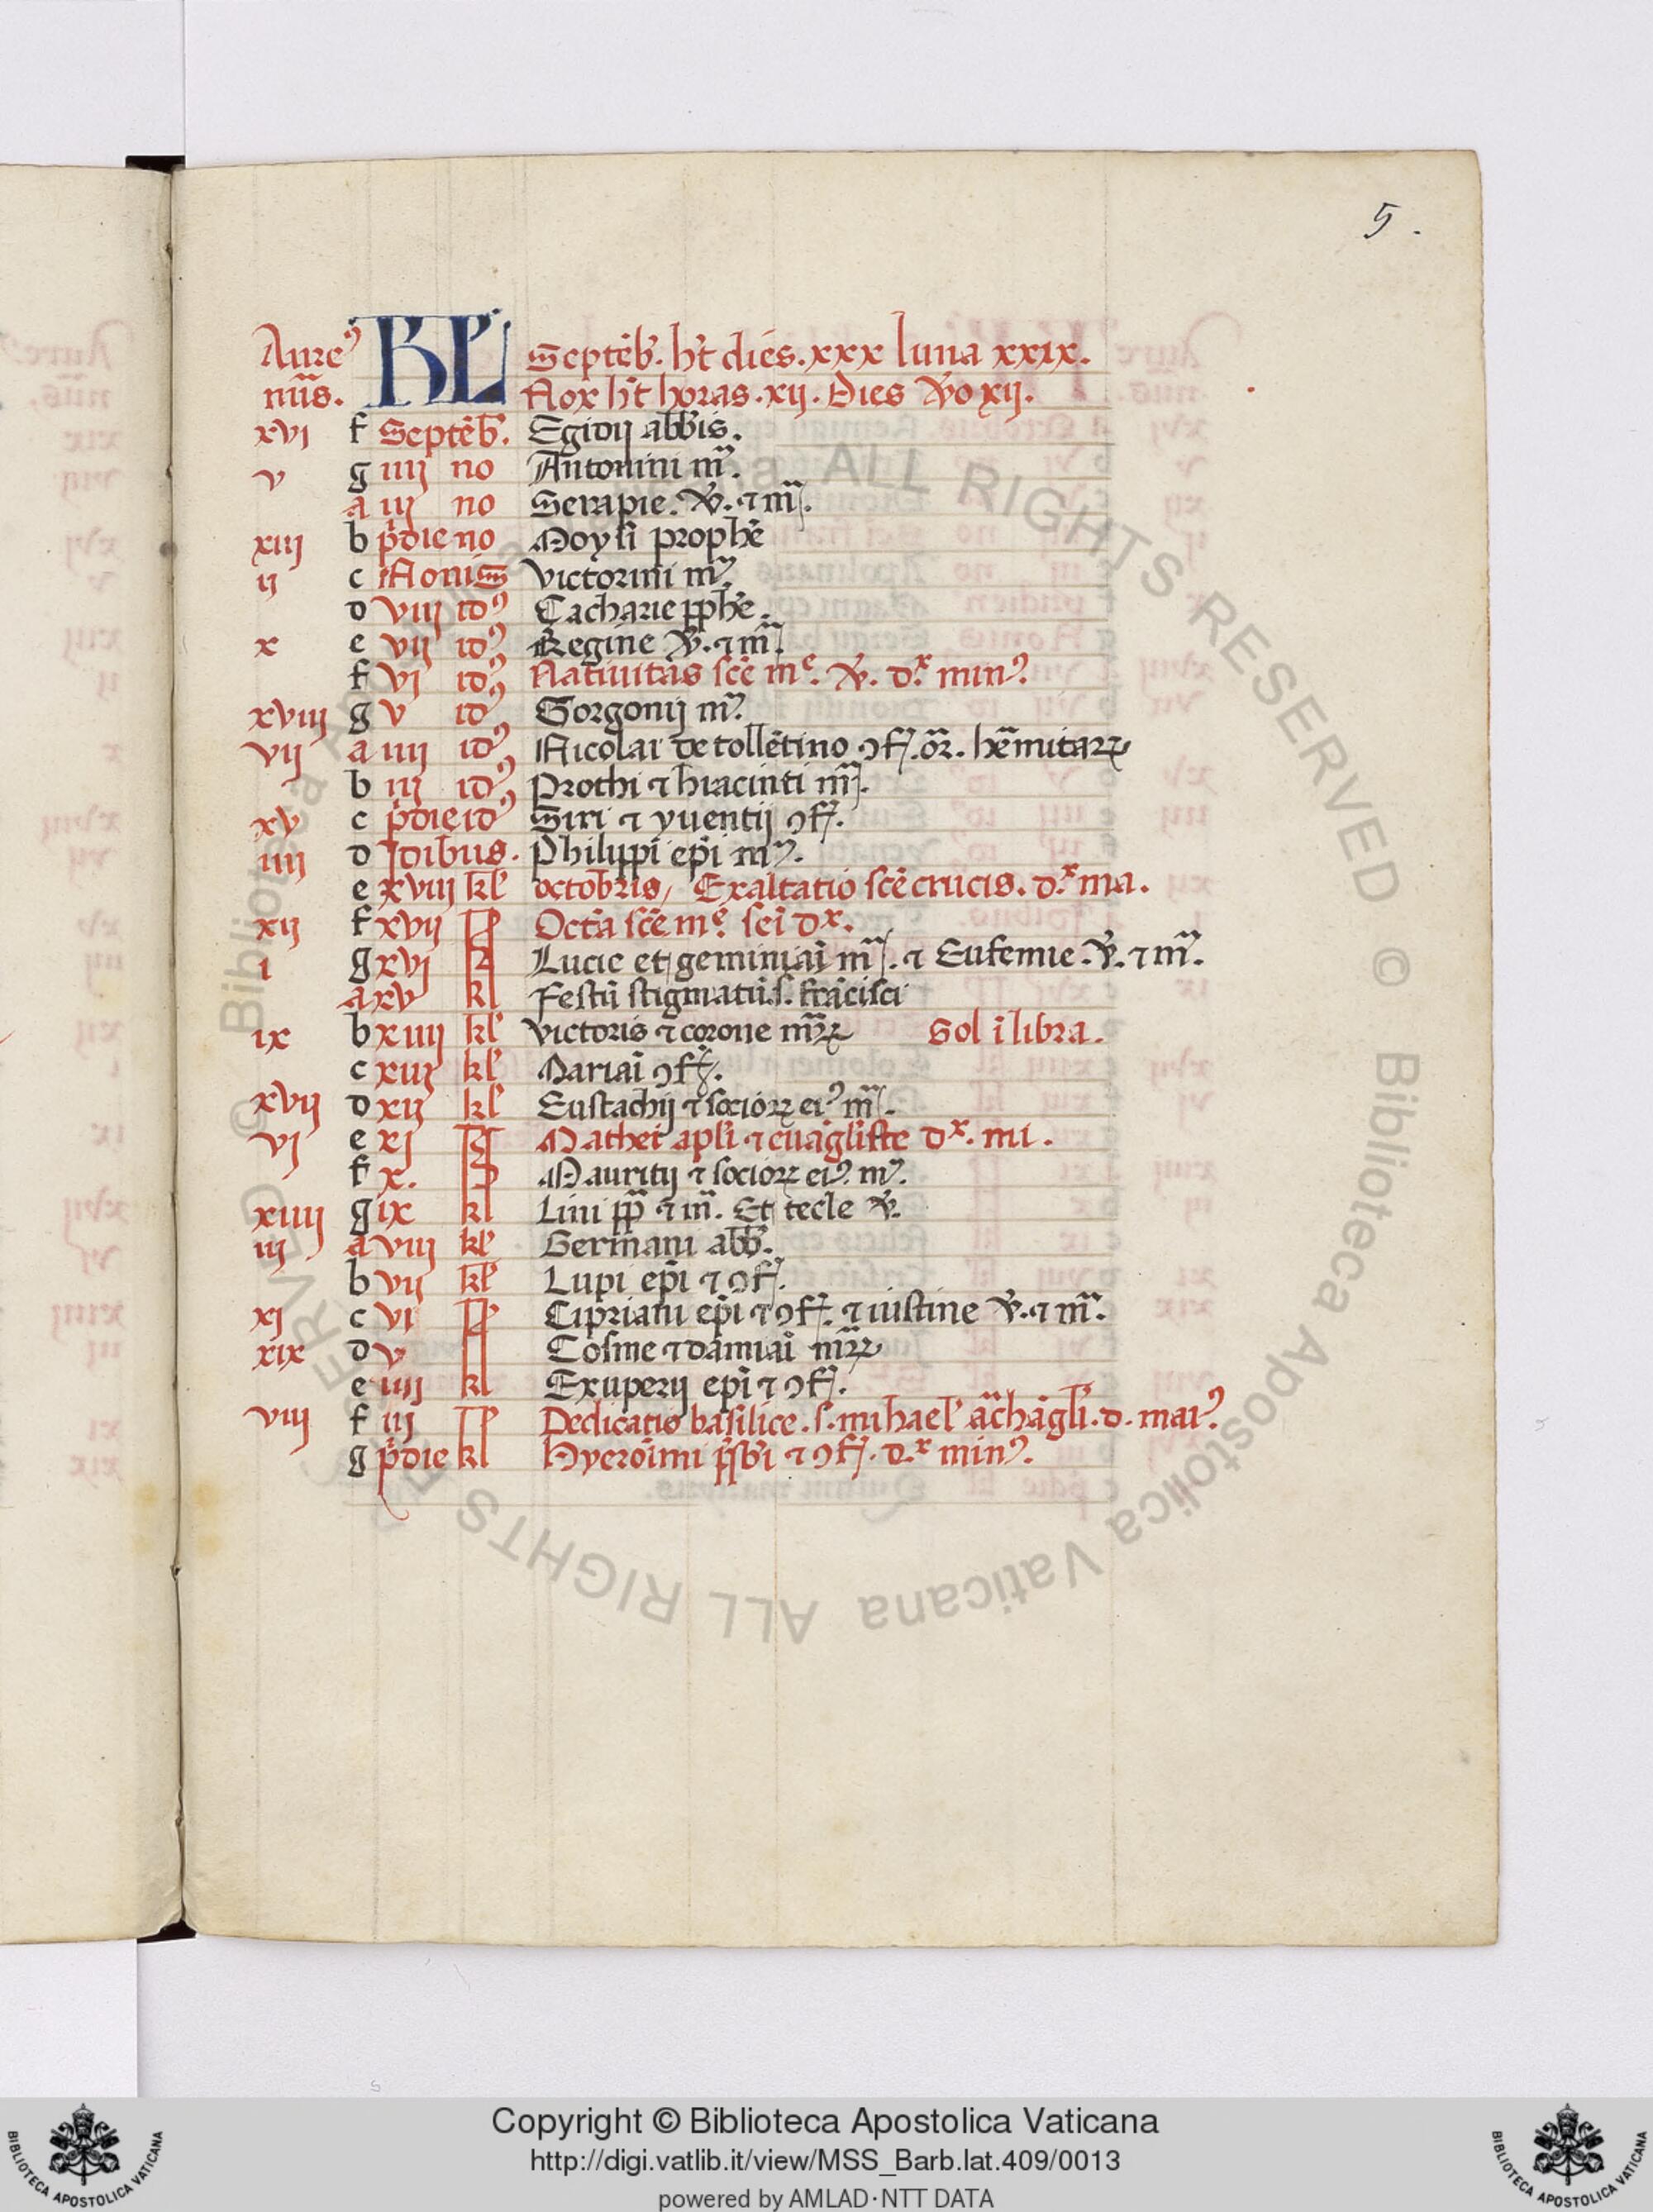 5.
Aure⁹ KL Septēb̃. h̃t dies. xxx luna xxix.
nũs. Nox h̃t horas. xij. Dies v̾o xij.
xvi f Septēb̃. Egidij abb̃is.
v g iiij no Antonini m̃.
a iij no Serapie. v̾. ⁊ m̃.
xiij b p̾die no Moysi prophẽ
ij c Nonis Victorini m̃.
d viij id⁹ Çacharie ꝓphẽ.
x e vij id⁹ Regine v̾. ⁊ m̃.
f vj id⁹ Natiuitas sc̃e mᵉ. v̾. dˣ. min⁹.
xviij g v id⁹ Gorgonij m̃.
vij a iiij id⁹ Nicolai de tollẽtino ꝯf̃. or̃. hẽmitaꝝ
b iij id⁹ Prothi ⁊ hiacinti m̃.
xv c p̾die id⁹ Siri ⁊ yuentij ꝯf̃.
iiij d Idibus. Philuppi ep̃i m̃.
e xviij kl̃ octobris, Exaltatio sc̃e crucis. dˣ. ma.
xij f xvij kl̃ Octã sc̃e mᵉ. sei dˣ.
i g xvj kl̃ Lucie et geminiãi m̃. ⁊ Eufemie. v̾. ⁊ m̃.
a xv kl Festũ stigmatũ. s. frãcisci
ix b xiiij kl̃ Victoris ⁊ corone mr̃ꝝ Sol ĩ libra.
c xiij kl̃ Mariãi ꝯf̃.
xvij d xij kl̃ Eustachij ⁊ socioꝝ ei⁹ m̃.
vj e xj kl̃ Mathei apl̃i ⁊ euãgl̃iste dˣ. mi.
f x. kl̃ Mauritij ⁊ socioꝝ ei⁹. m̃.
xiiij g ix kl Lini pp̃ ⁊ m̃. Et tecle v̾.
iij a viij kl̃ Germani abb̃.
b vij kl̃ Lupi ep̃i ⁊ ꝯf̃.
xj c vi kl̃ Cipriani ep̃i ⁊ ꝯf̃. ⁊ iustine v̾. ⁊ m̃.
xix d v kl̃ Cosme ⁊ damiãi mr̃ꝝ
e iiij kl Exuperij ep̃i ⁊ ꝯf̃.
viij f iij kl̃ Dedicatio basilice. s. mihael̃ ar̃chãgl̃i. d. mai⁹.
g p̾die kl Hyerõimi p̃sb̃i ⁊ ꝯf̃. dˣ. min⁹.
© Biblioteca Apostolica Vaticana ALL RIGHTS RESERVED © Biblioteca Apostolica Vaticana ALL RIGHTS RESERVED
Copyright © Biblioteca Apostolica Vaticana
http://digi.vatlib.it/view/MSS_Barb.lat.409/0013
powered by AMLAD·NTT DATA
BIBLIOTECA APOSTOLICA VATICANA
BIBLIOTECA APOSTOLICA VATICANA